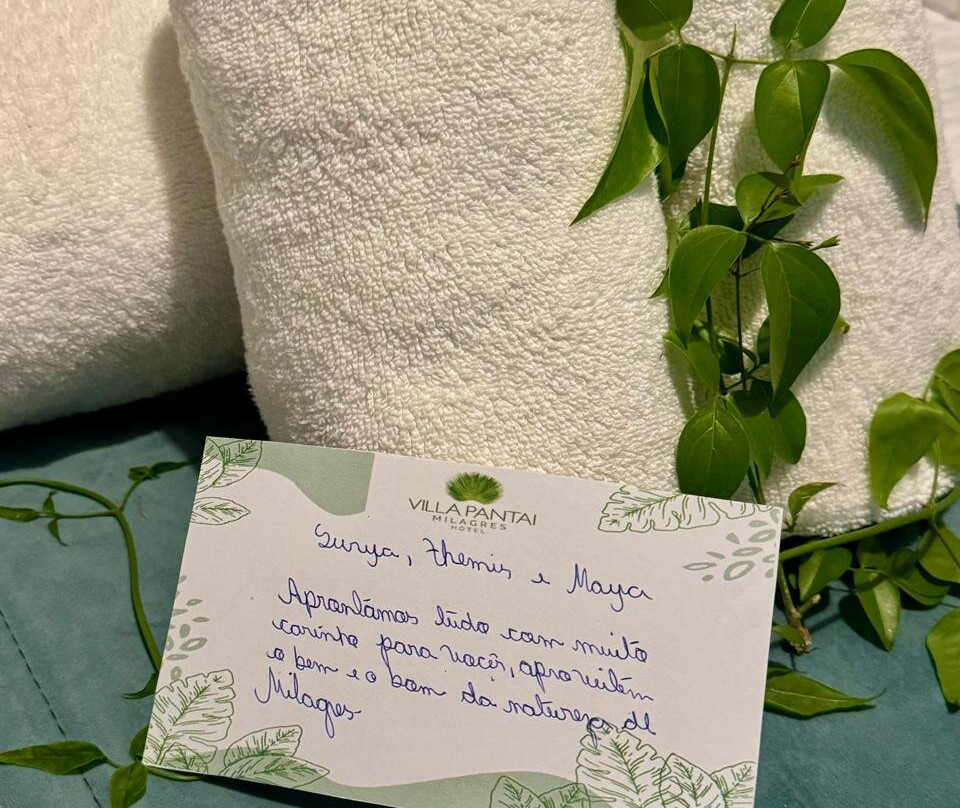 VILLA PANTAI
MILAGRES
HOTEL
Surya, Themis e Maya
Aprontámos tudo com muito
carinho para vocês, aproveitem
o bem e o bom da natureza de
Milagres